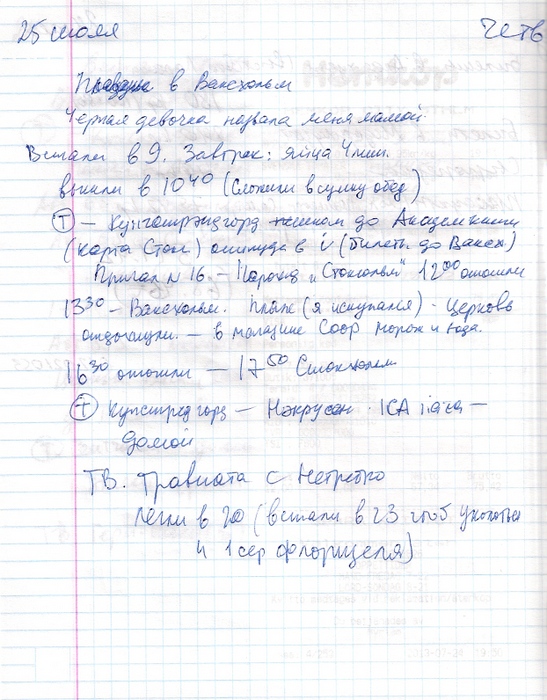 25 июля Четв
в Ваксхольм
Черная девочка назвала меня мамой.
Встали в 9. Завтрак: яйца 4 мин.
вышли в 10 40 (Сложили в сумку обед)
Т — Кунгстрэдгорд пешком до Академкниги
(карта Сток) оттуда в i (билеты до Ваксх)
Причал N 16 — Пароход "Стокгольм" 12 00 отошли
13 30 — Ваксхольм. Пляж (я искупался) - Церковь
отдохнули. — в магазине Coop морож и вода.
16 30 отошли — 17 50 Стокхольм
Т Кунстредгорд — — ICA —
домой
ТВ. Травиата с Нетребко
легли в 20 (встали в 23 чтоб уколоться
и 1 сер флорицеля)